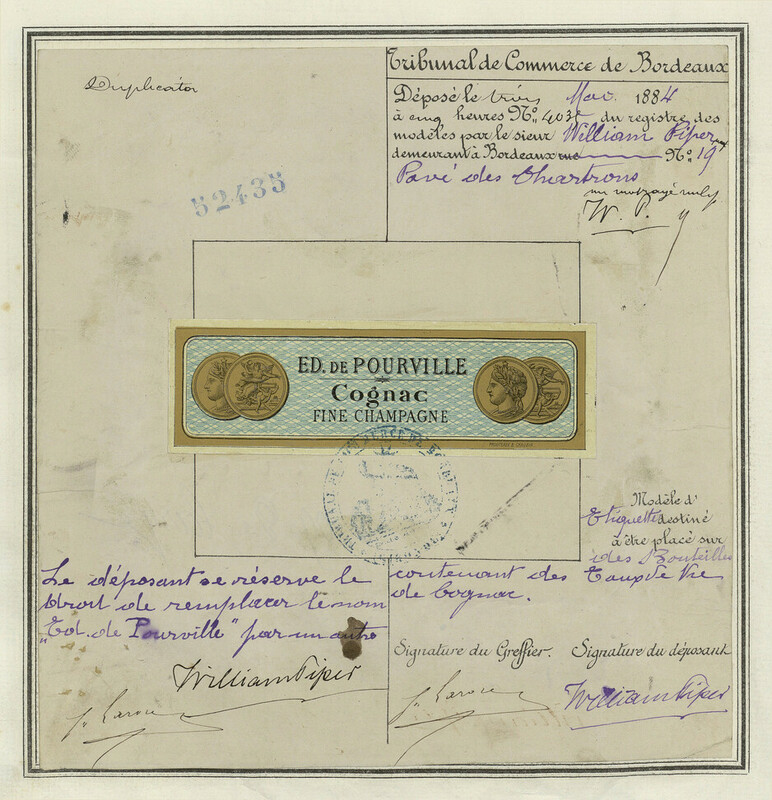 Duplicata
Tribunal de Commerce de Bordeaux
Déposé le trois Mai 1884
à cinq heures No. du registre des
modèles par le sieur William Piper
demeurant à Bordeaux rue No. 19
Pavé des Chartrons
un mot rayé nul
W. P.
52435
ED. DE POURVILLE
Cognac
FINE CHAMPAGNE
TRIBUNAL DE COMMERCE DE BORDEAUX
Modèle d'
Etiquette destiné
à être placé sur
des Bouteilles
contenant des Eaux de Vie
de Cognac.
Le déposant se réserve le
droit de remplacer le nom
"Ed. de Pourville" par un autre
William Piper
Signature du Greffier. Signature du déposant
William Piper